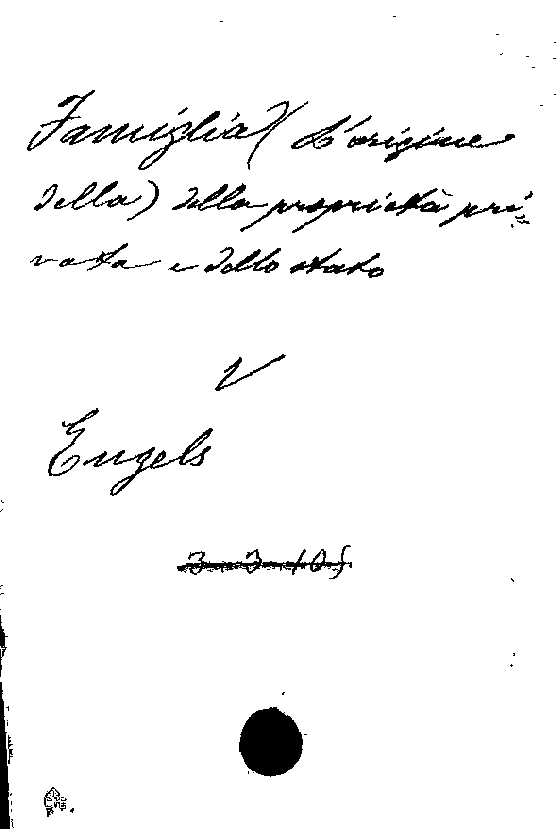 Famiglia (L'origine
della) della proprietà pri=
vata e dello stato
V
Engels
3 3 10 5